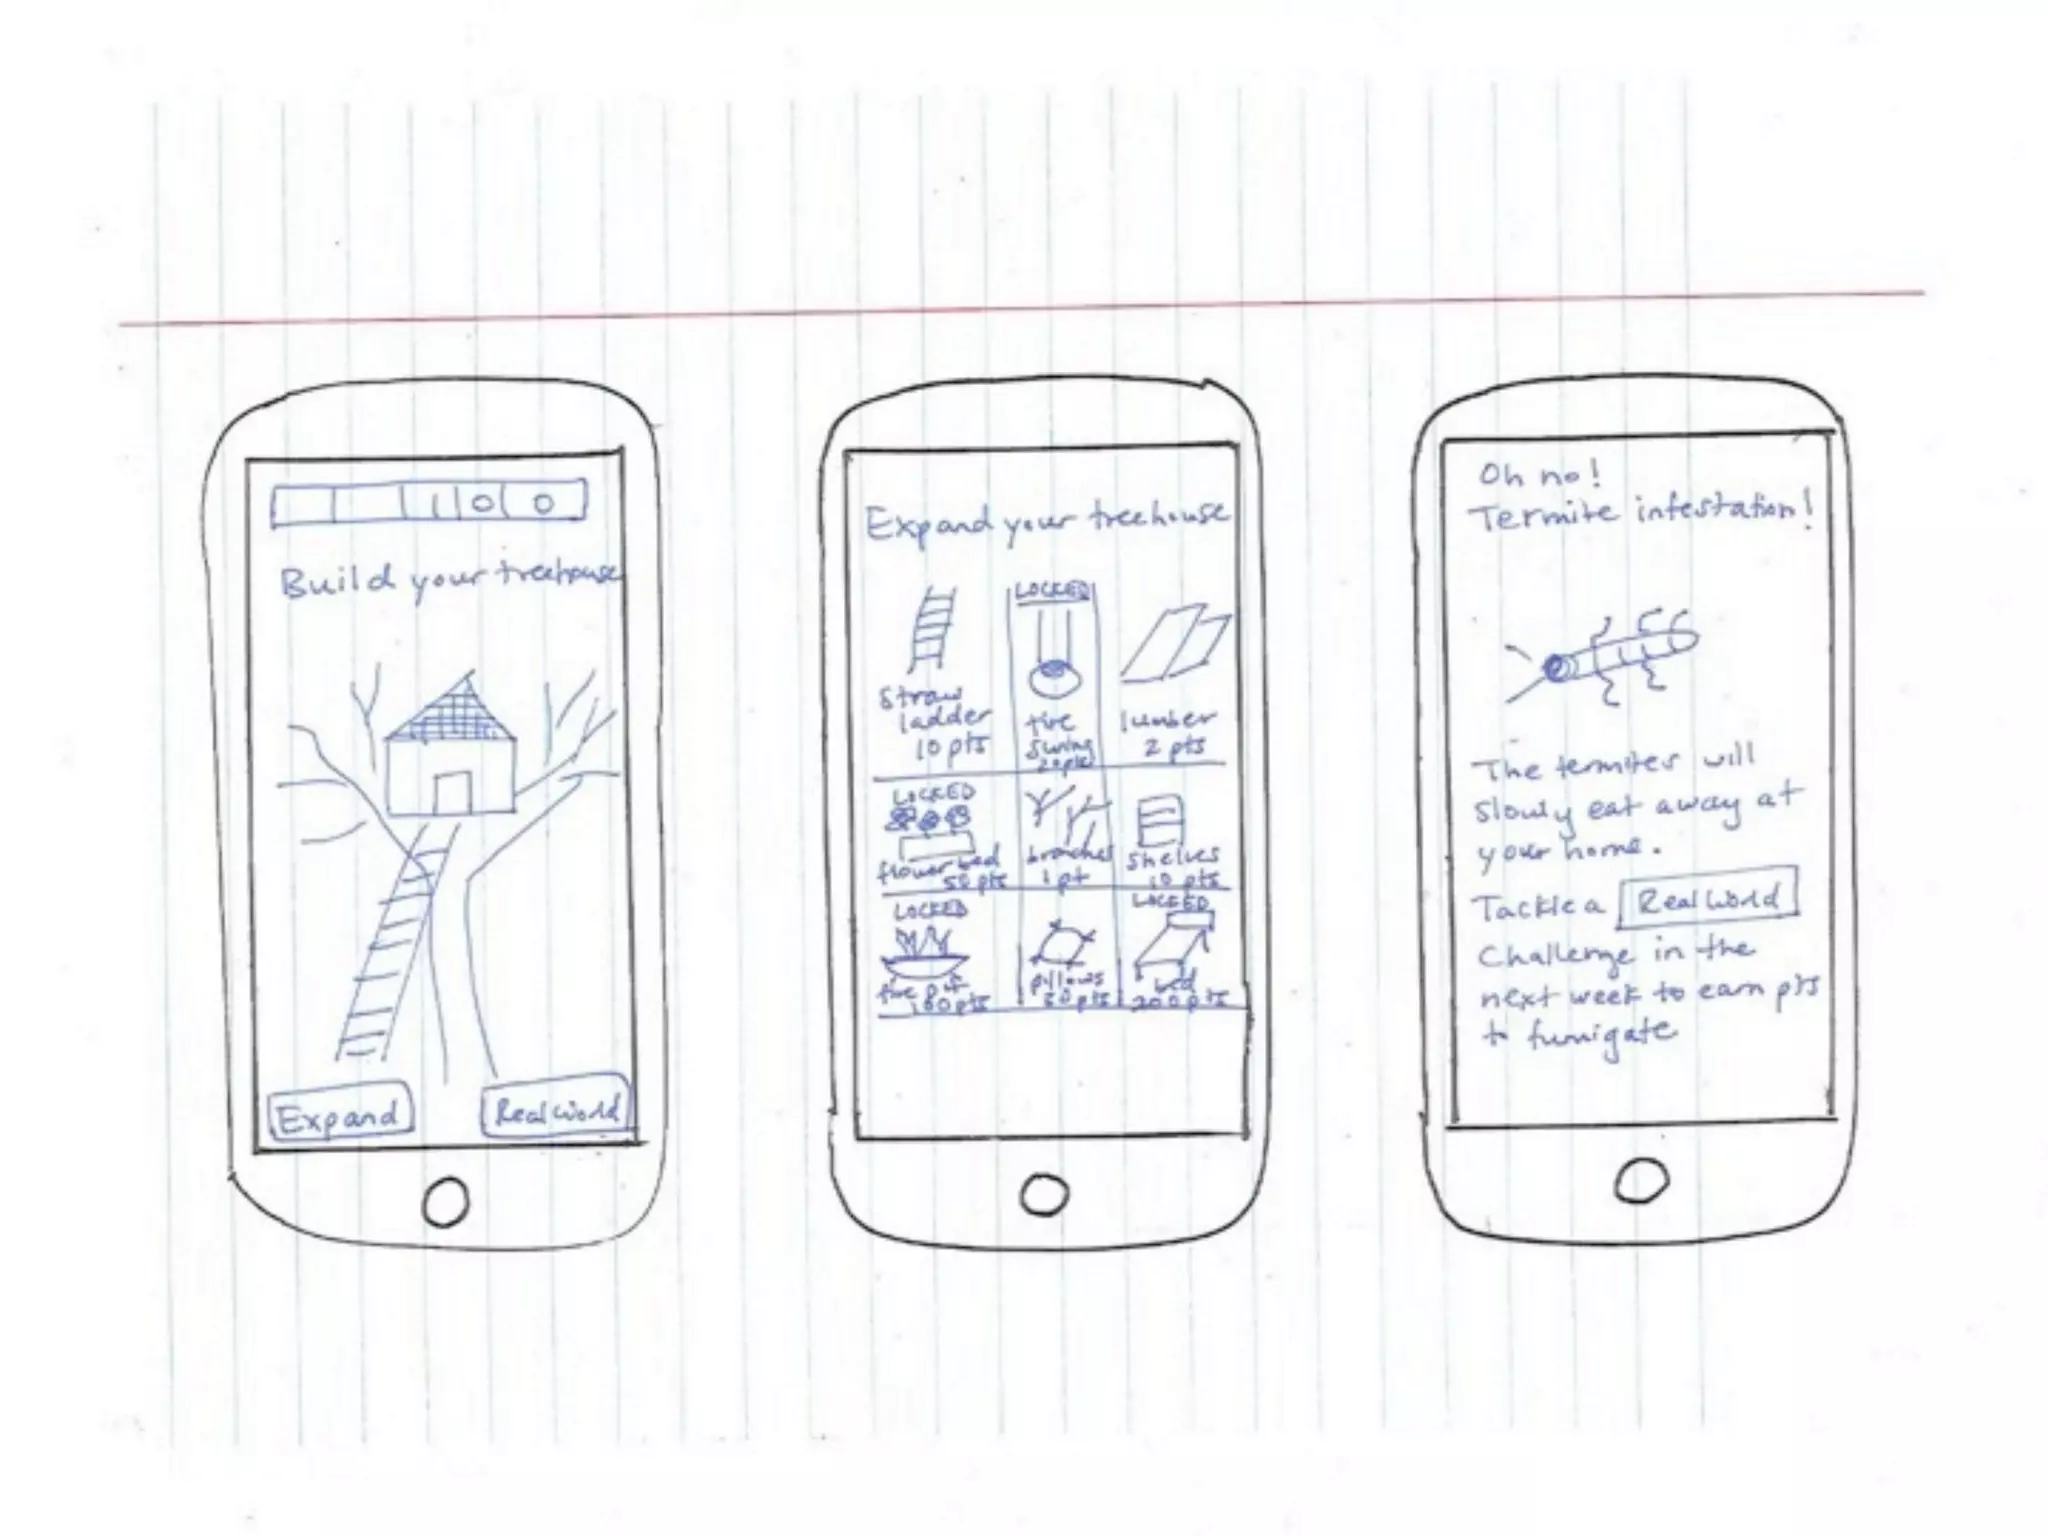 1 0 0
Build your treehouse
Expand
Real World
Expand your treehouse
LOCKED
straw
ladder
10 pts
tire
swing
20 pts
lumber
2 pts
LOCKED
flower bed
50 pts
branches
1 pt
shelves
10 pts
LOCKED
fire pit
100 pts
pillows
50 pts
LOCKED
bed
200 pts
Oh no!
Termite infestation!
The termites will
slowly eat away at
your home.
Tackle a Real World
Challenge in the
next week to earn pts
to fumigate